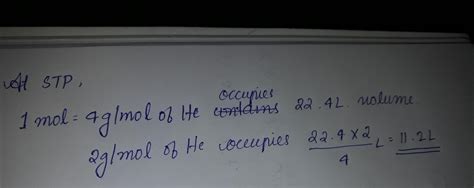 At STP,
1 mol = 4g/mol of He occupies contains 22.4L volume
2g/mol of He occupies 22.4 X 2 / 4 L = 11.2L